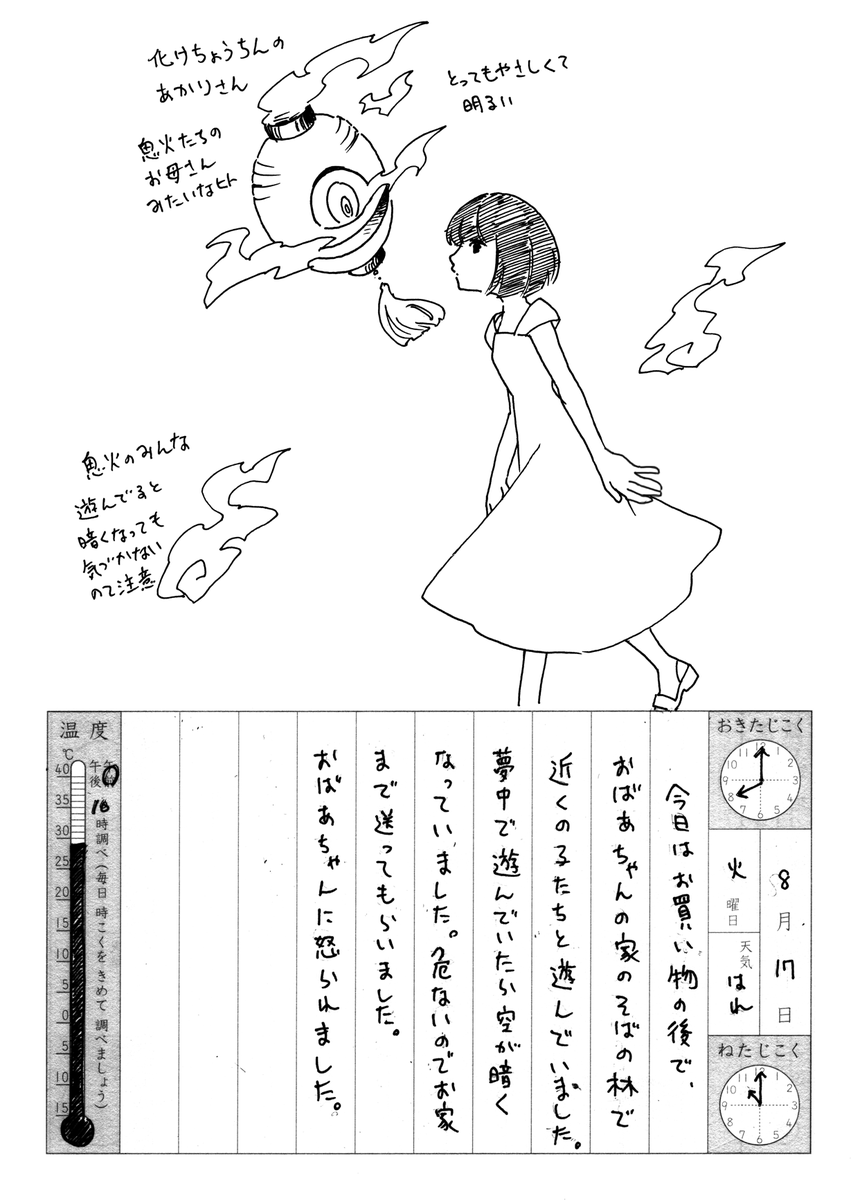 化けちょうちんの
あかりさん
鬼火たちの
お母さん
みたいなヒト
とってもやさしくて
明るい
鬼火のみんな
遊んでると
暗くなっても
気づかない
ので注意
おきたじこく
8月17日
火曜日
天気 はれ
ねたじこく
今日はお買い物の後で、
おばあちゃんの家のそばの林で
近くの子たちと遊んでいました。
夢中で遊んでいたら空が暗く
なっていました。危ないのでお家
まで送ってもらいました。
おばあちゃんに怒られました。
温度
℃
午前
午後
16時調べ(毎日 時こくを きめて 調べましょう)
40
35
30
25
20
15
10
5
0
5
10
15